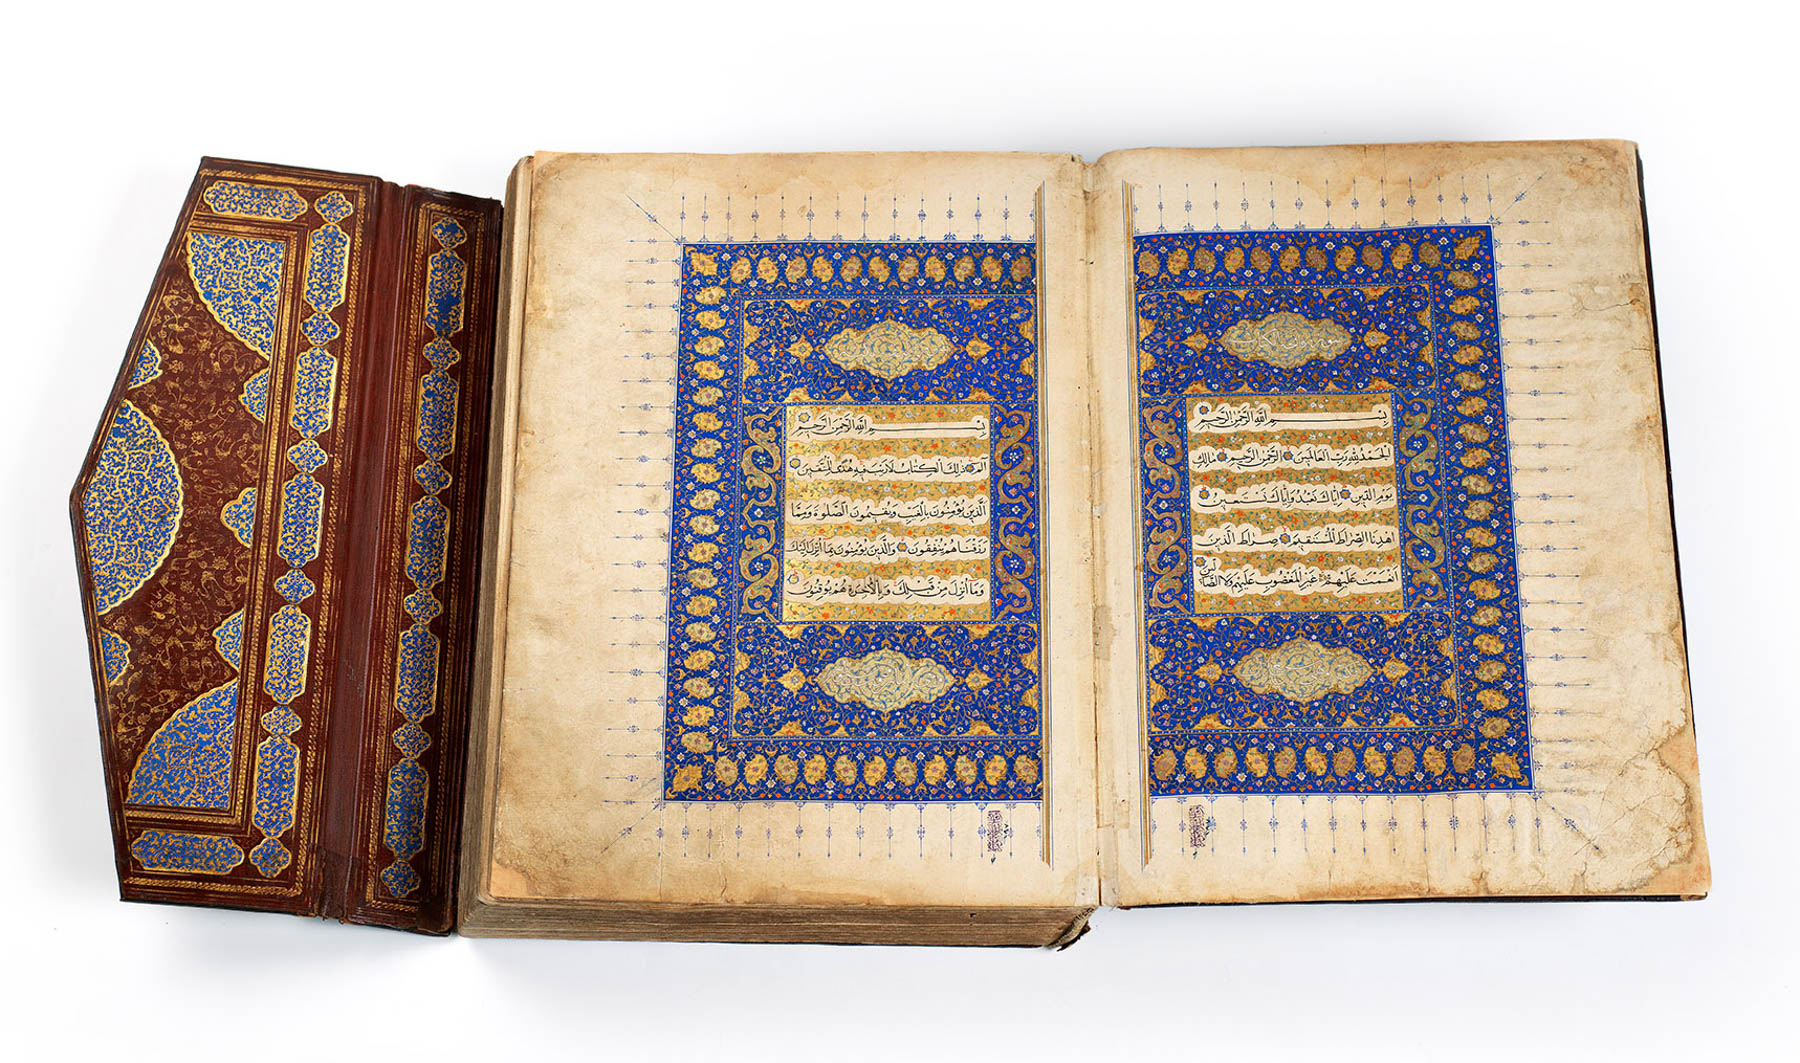 سورة فاتحة الكتاب
بسم الله الرحمن الرحيم
الحمد لله رب العالمين الرحمن الرحيم مالك
يوم الدين اياك نعبد واياك نستعين
اهدنا الصراط المستقيم صراط الذين
انعمت عليهم غير المغضوب عليهم ولا الضالين
بسم الله الرحمن الرحيم
الم ذلك الكتاب لا ريب فيه هدى للمتقين
الذين يؤمنون بالغيب ويقيمون الصلوة ومما
رزقناهم ينفقون والذين يؤمنون بما انزل اليك
وما انزل من قبلك وبالاخرة هم يوقنون